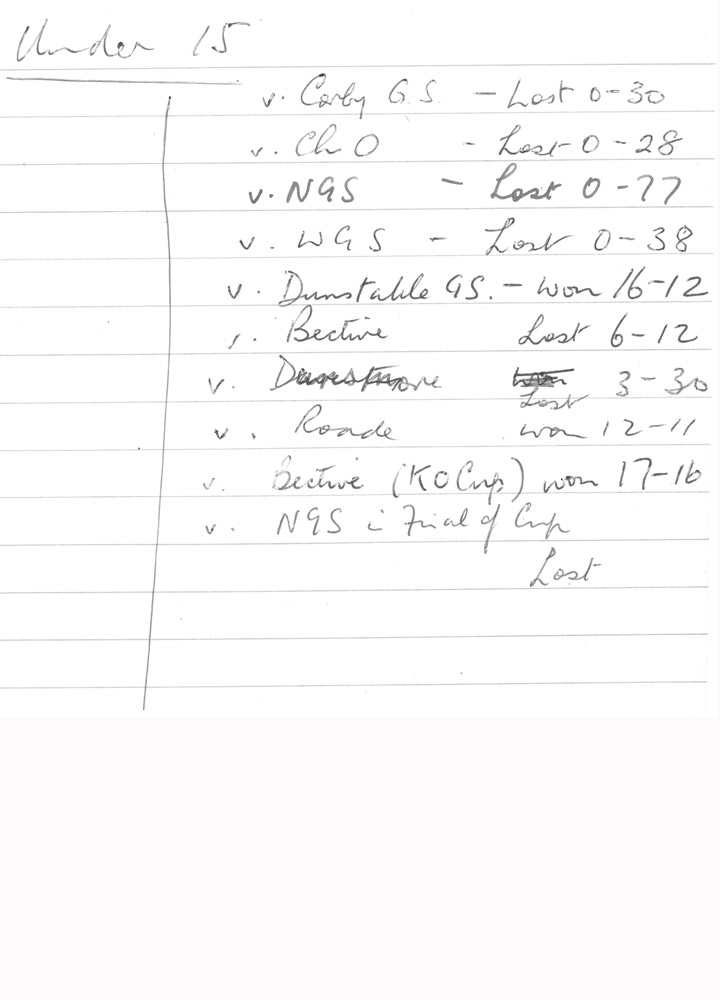 Under 15
v. Corby G.S. - Lost 0-30
v. Ch O - Lost 0-28
v. NGS - Lost 0-77
v. WGS - Lost 0-38
v. Dunstable GS. - won 16-12
v. Bective Lost 6-12
v. won 3-30
Lost
v. Roade won 12-11
v. Bective (KO Cup) won 17-16
v. NGS in Final of Cup
Lost